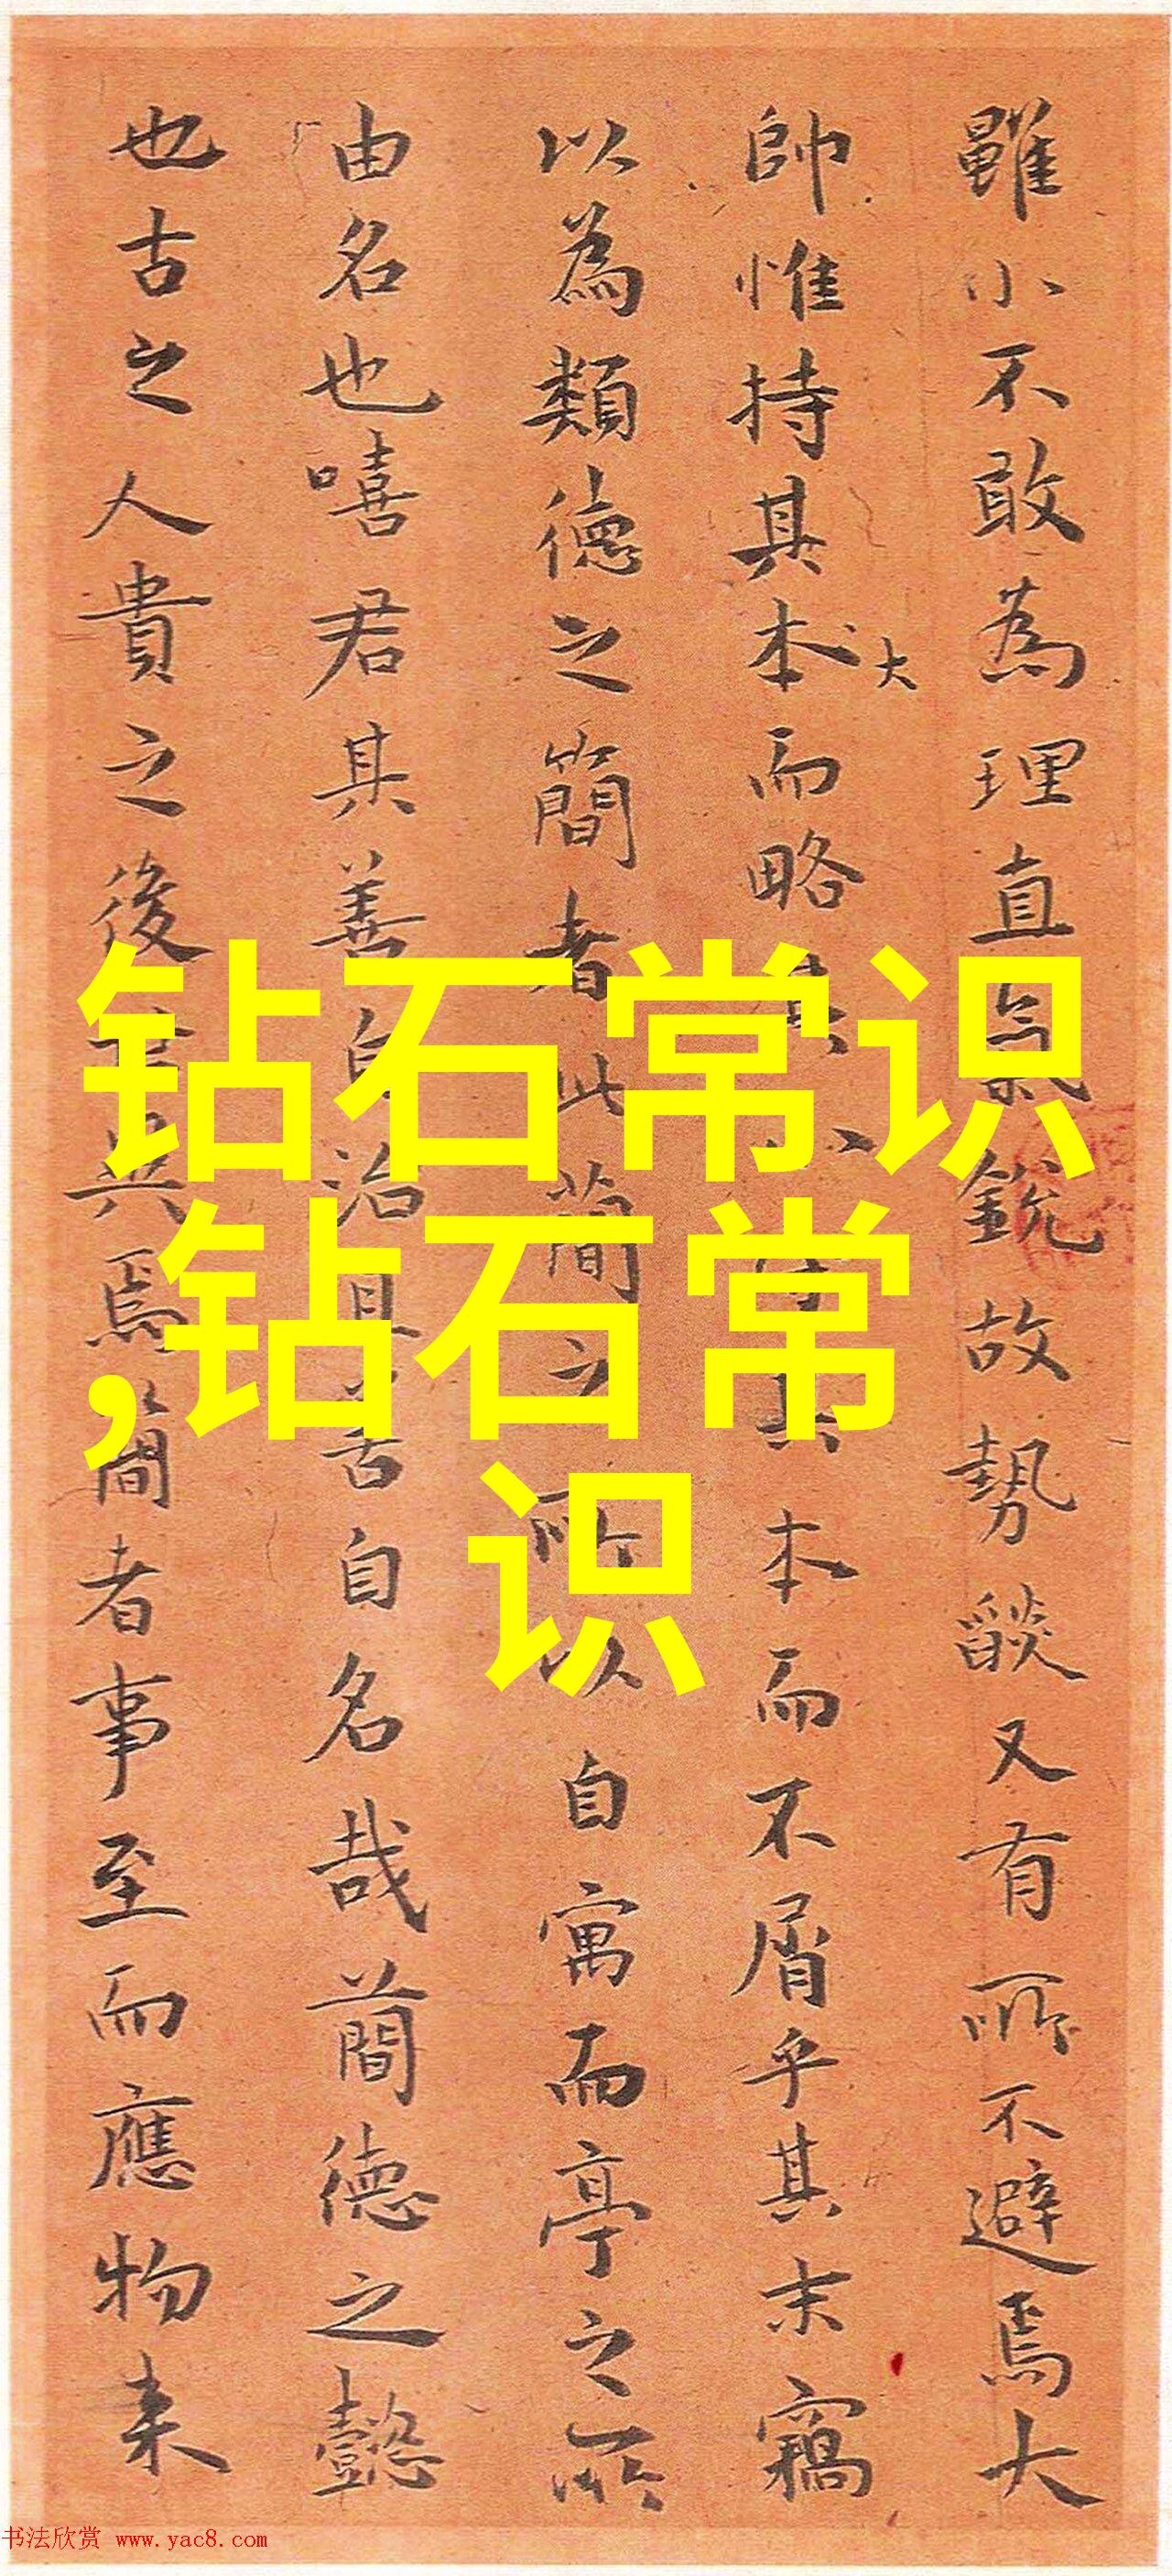 雖小不敢為理直氣銳故勢燄又有所不避焉大
帥惟持其本大而略其小其本而不屑乎其末竊
以為類德之簡者此簡之所以自寓而亭之所
由名也嘻君其善自治且善自名哉蕳德之懿
也古之人貴之後焉簡者事至而應物来
钻石常识
,钻石常
识
书法欣赏 www.yac8.com